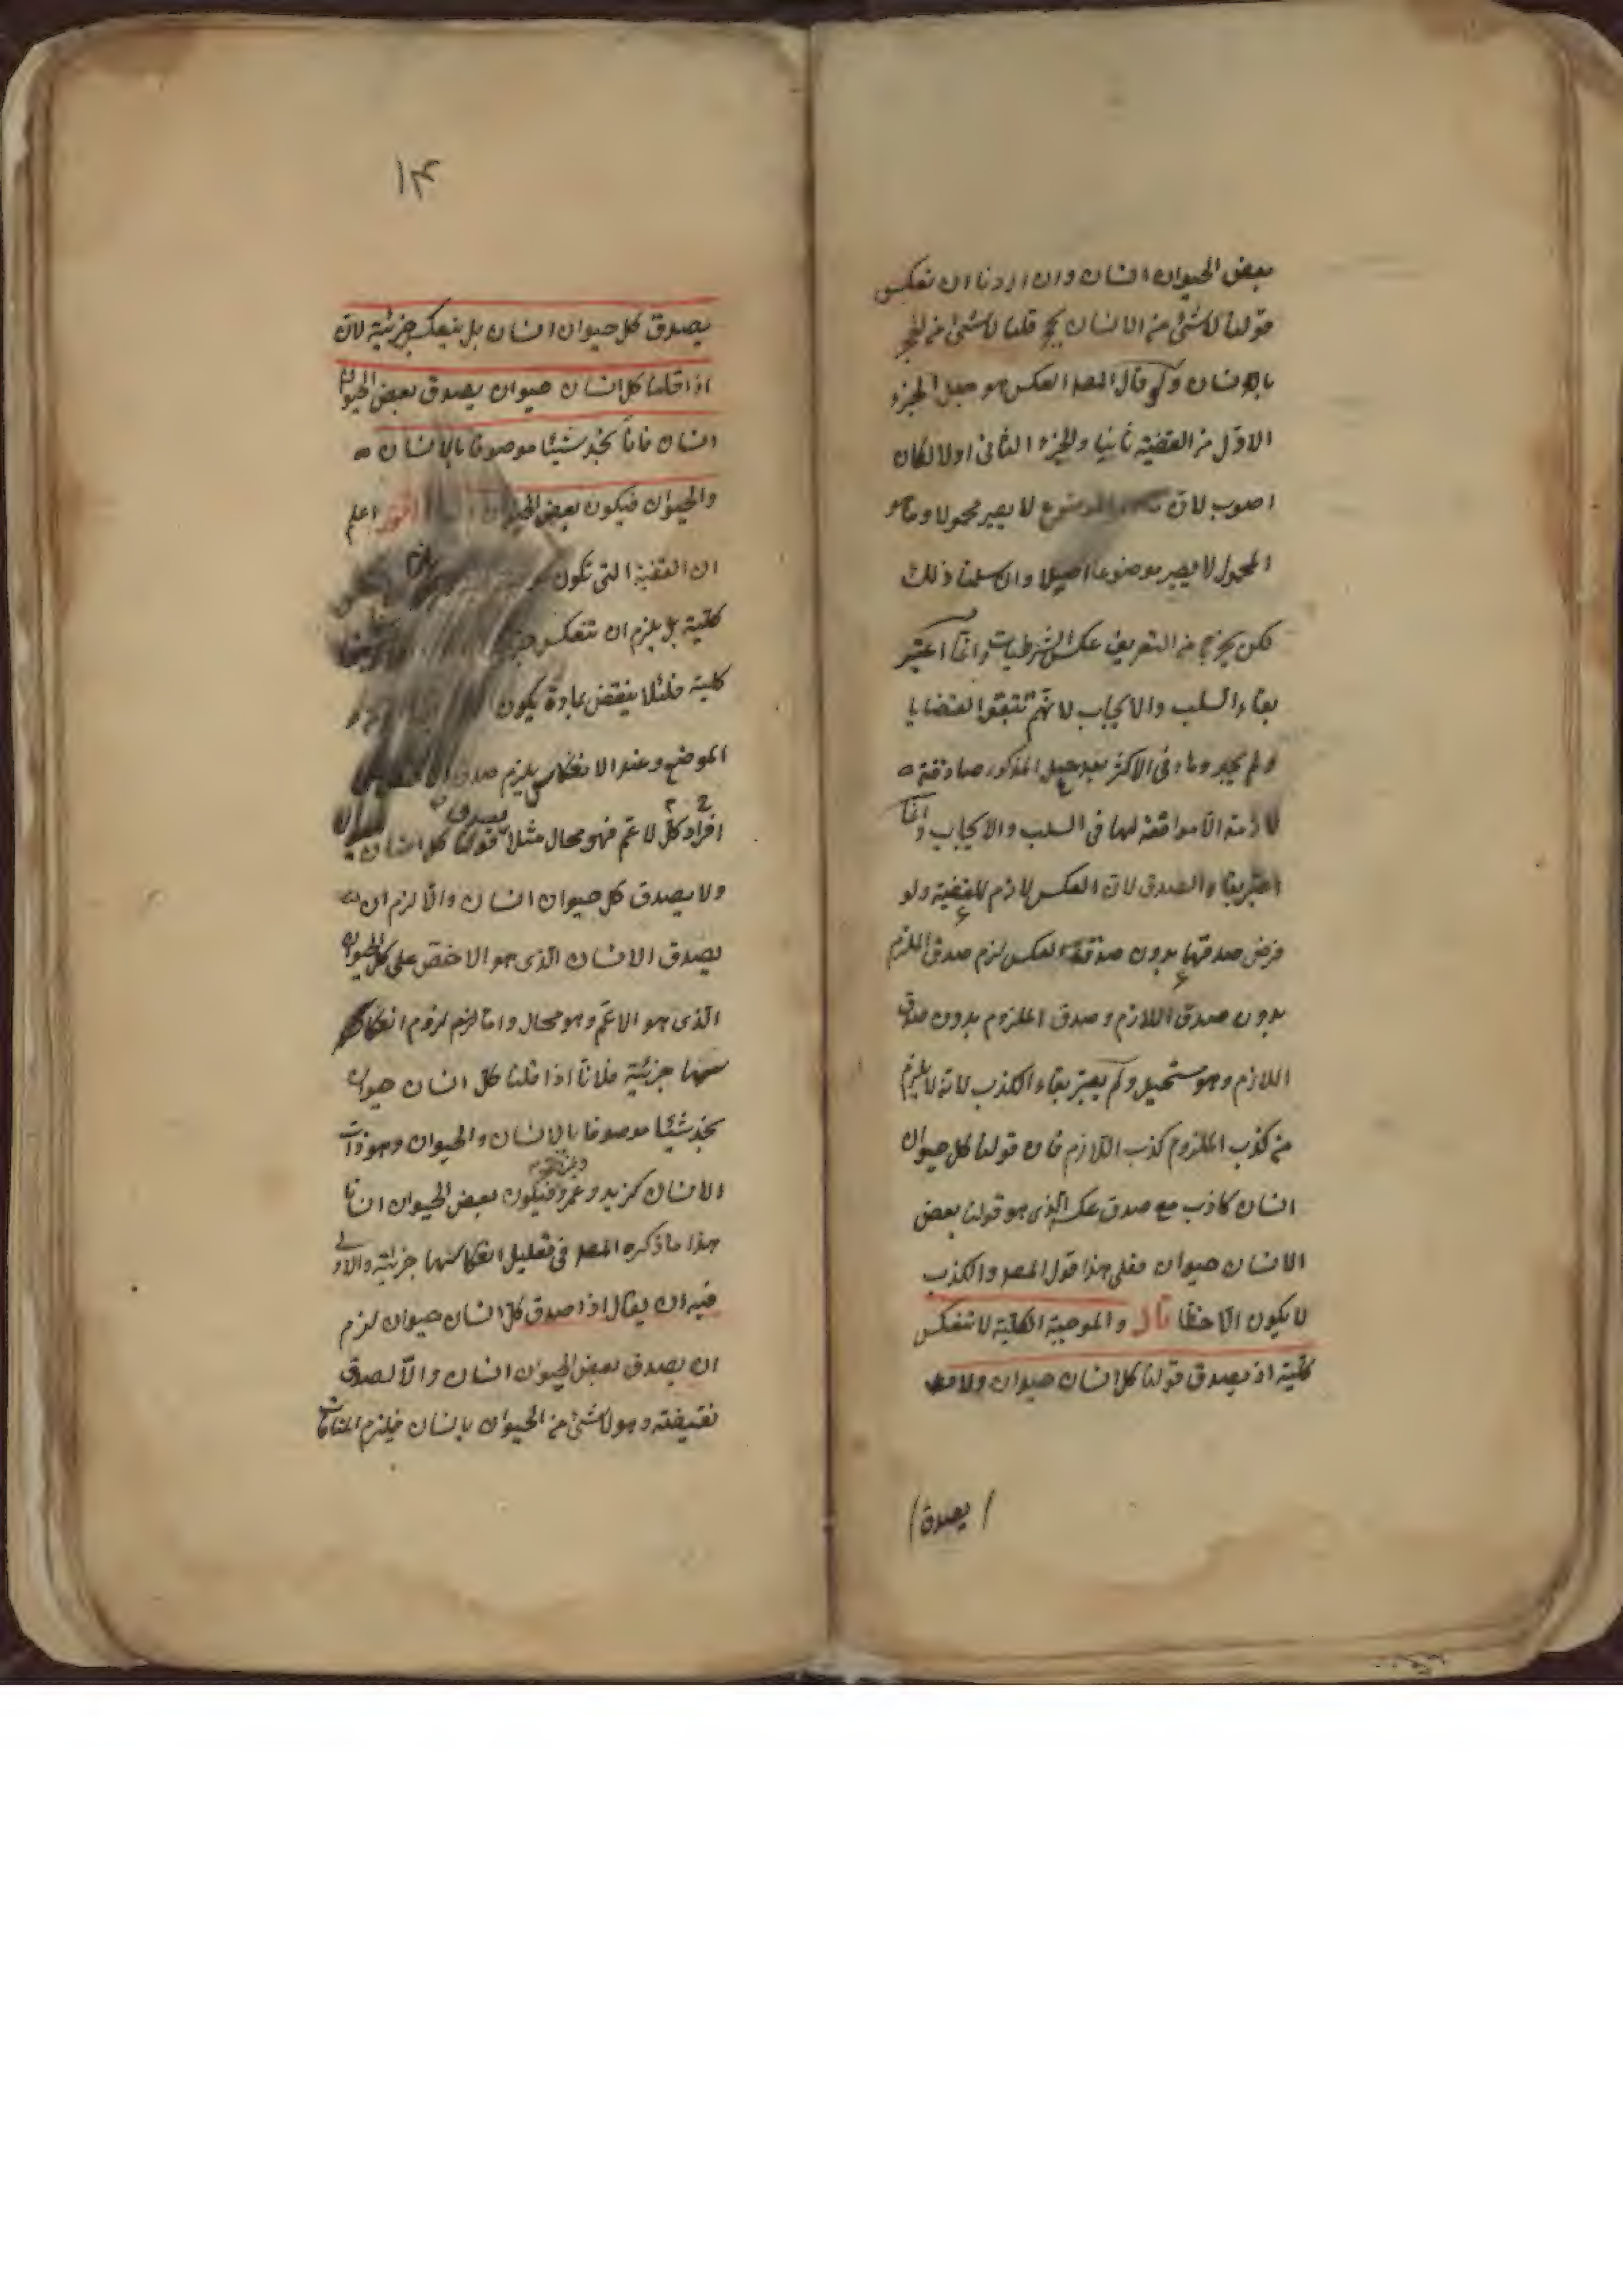 بعض الحيوان انسان وان اردنا ان نعكس
قولنا لا شئ من الانسان بحجر قلنا لا شئ من الحجر
بالانسان ولو قال المصه العكس هو جعل الجزء
الاول من القضية ثانيا والجزء الثانى اولا لكان
اصوب لان الموضوع لا يصير محمولا و
المحمول لا يصير موضوعا اصلا وان سلمنا ذلك
لكن يخرج من التعريف عكس الشرطيات وانما اعتبر
بقاء السلب والايجاب لانهم تتبعوا القضايا
ولم يجدوها فى الاكثر بعد جعل المذكور صادقة
لازمة الا موافقة لها فى السلب والايجاب وانما
اعتبر بقاء الصدق لان العكس لازم للقضية ولو
فرض صدقها بدون صدق العكس لزم صدق الملزوم
بدون صدق اللازم وصدق الملزوم بدون صدق
اللازم وهو مستحيل ولم يعتبر بقاء الكذب لانه لا يلزم
من كذب الملزوم كذب اللازم فان قولنا كل حيوان
انسان كاذب مع صدق عكسه الذى هو قولنا بعض
الانسان حيوان فعلى هذا قول المصه والكذب
لا يكون الا خطأ قال والموجبة الكلية لا تنعكس
كلية اذ يصدق قولنا كل انسان حيوان ولا
يصدق
١٣
يصدق كل حيوان انسان بل ينعكس جزئية لان
اذا قلنا كل انسان حيوان يصدق بعض الحيوان
انسان فانا نجد شيئا موصوفا بالانسان
والحيوان فيكون بعض الحيوان اقول اعلم
ان القضية التى تكون
كلية بل يلزم ان تنعكس
كلية فلئلا ينقض بمادة يكون
الموضع وعند الانعكاس يلزم صدق
افراد كل الاعم فهو محال مثلا يصدق قولنا كل انسان حيوان
ولا يصدق كل حيوان انسان والا لزم ان
يصدق الانسان الذى هو الاخص على كل الحيوان
الذى هو الاعم وهو محال واما لزوم انعكاسها
جزئية فلانا اذا قلنا كل انسان حيوان
نجد شيئا موصوفا بالانسان والحيوان وهو ذات
الانسان كزيد وعمرو فيكون بعض الحيوان انسانا
هذا ما ذكره المصه فى تعليل انعكاسها جزئية والاولى
فيه ان يقال اذا صدق كل انسان حيوان لزم
ان يصدق بعض الحيوان انسان والا لصدق
نقيضه وهو لا شئ من الحيوان بانسان فيلزم المنافاة